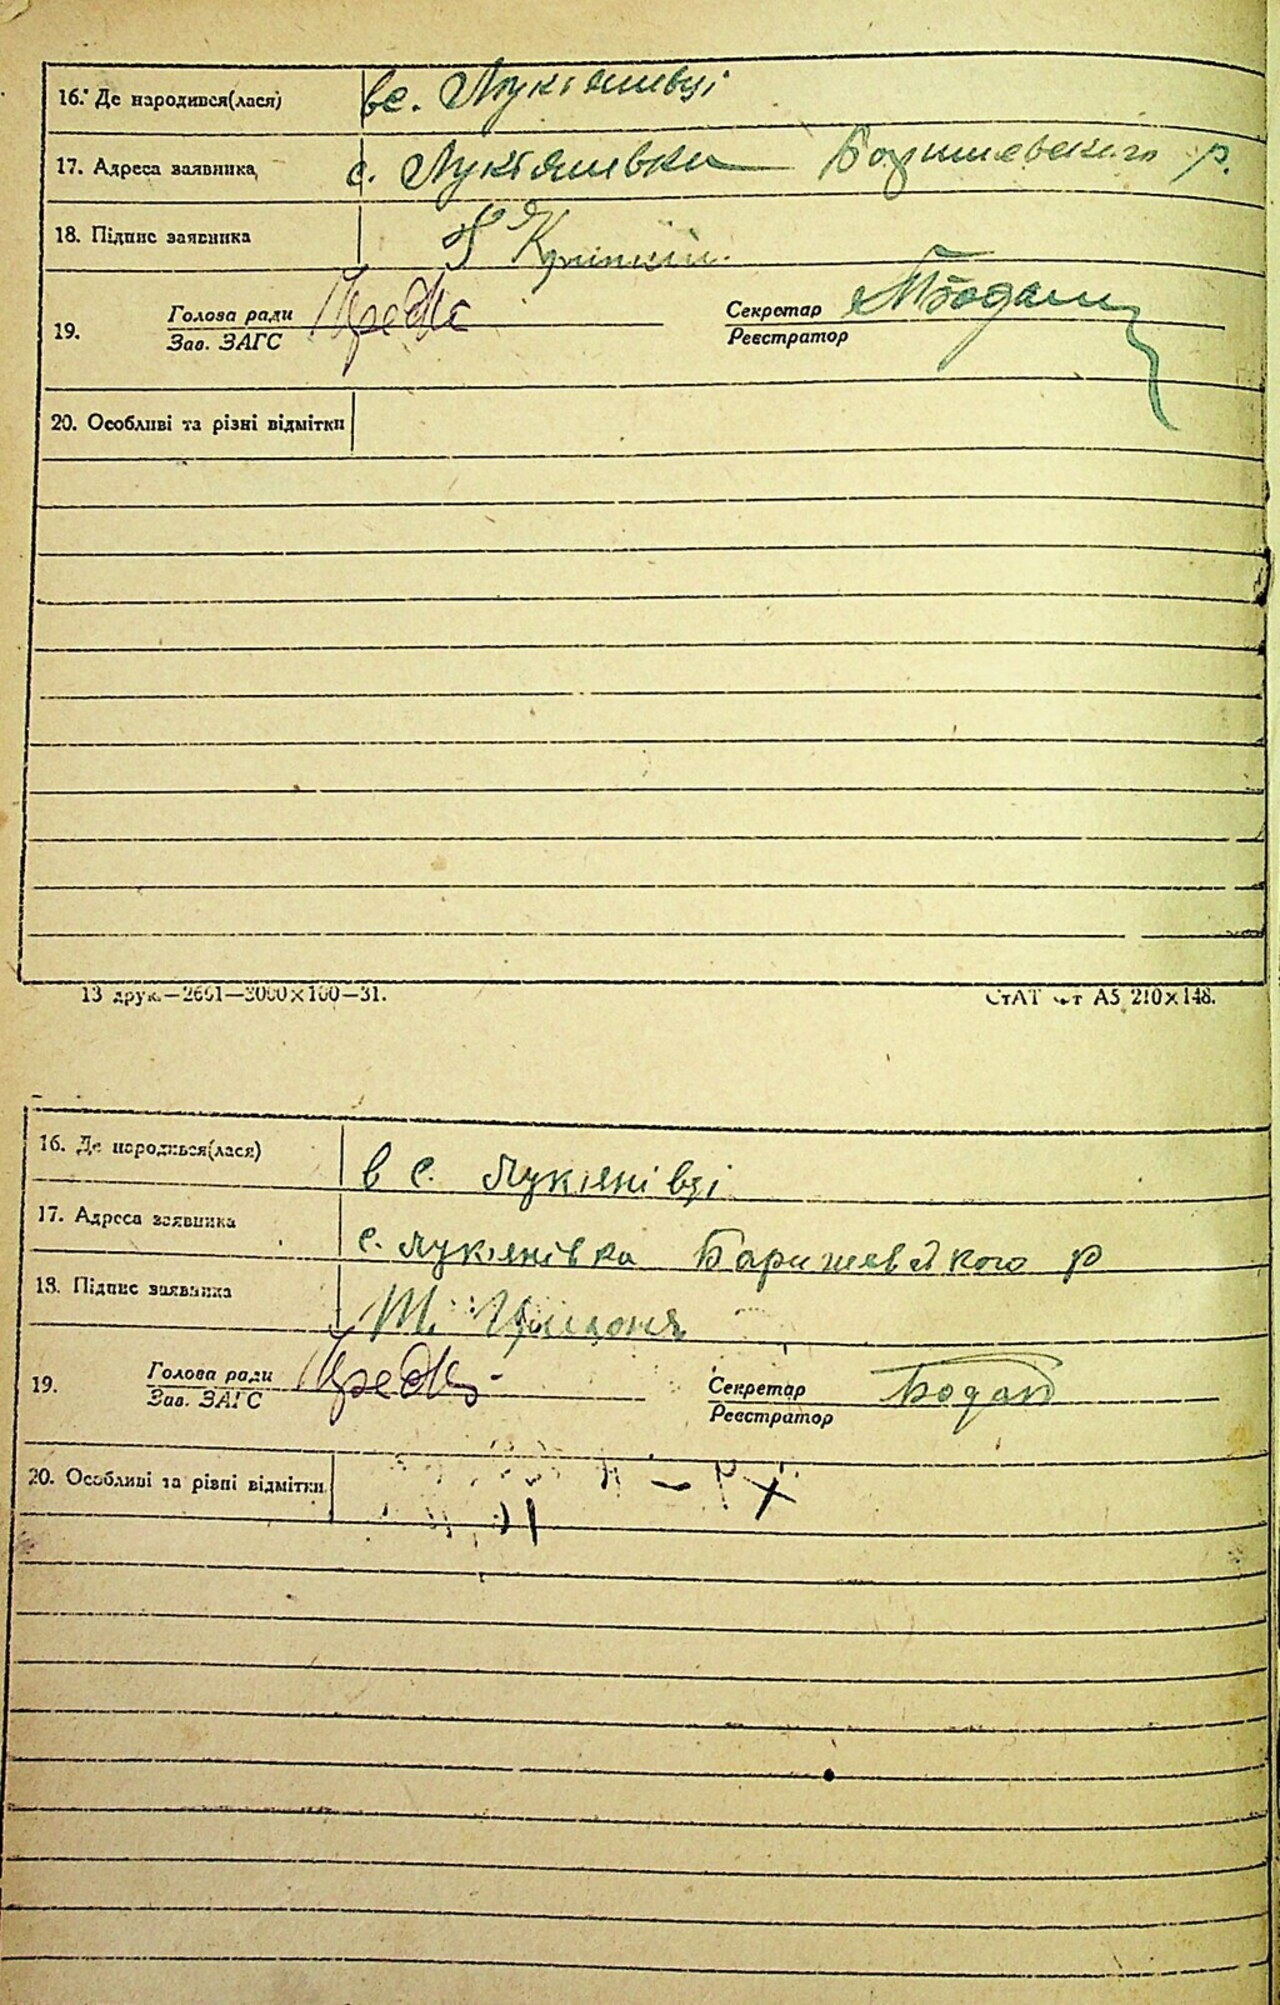 16. Де народився(лася) в с. Лукіянивці
17. Адреса заявника с. Лукіянивка Баришевського р.
18. Підпис заявника
19. Голова ради Секретар
Зав. ЗАГС Реєстратор
20. Особливі та різні відмітки
13 друк.—2661—3000×100—31. СтАТ А5 210×148.
16. Де народився(лася) в с. Лукіянівці
17. Адреса заявника с. Лукіянівка Баришевського р
18. Підпис заявника
19. Голова ради Секретар
Зав. ЗАГС Реєстратор
20. Особливі та різні відмітки